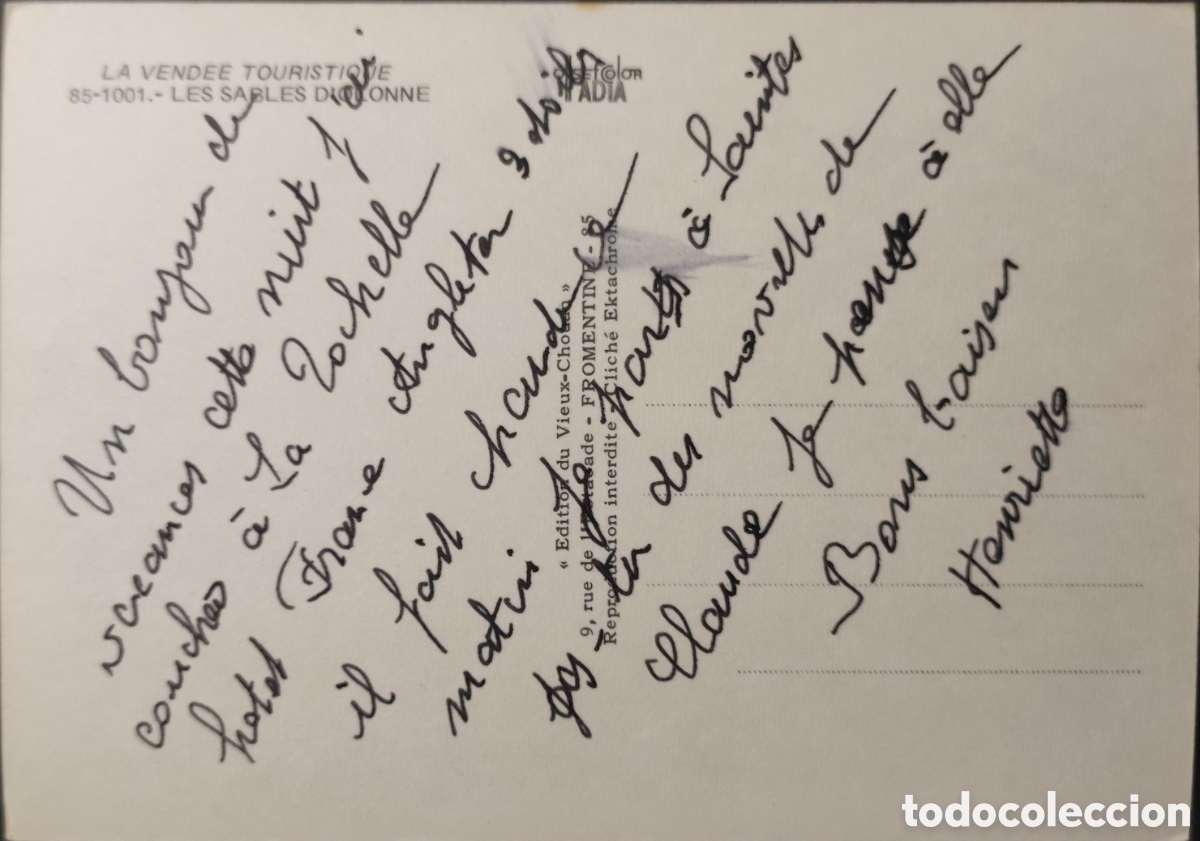 LA VENDEE TOURISTIQUE
85-1001.- LES SABLES D'OLONNE
OFFSETCOLOR
IRADIA
« Edition du Vieux-Chouan »
9, rue de l'Estacade - FROMENTINE - 85
Reproduction interdite - Cliché Ektachrome
Un bonjour de
vacances cette nuit j'ai
couché à La Rochelle
hotel France Angleter 3 etoiles
il fait chaud ce
matin je parts à Saintes
des nouvelles de
Claude je pense à elle
Bons baisers
Henriette
todocoleccion